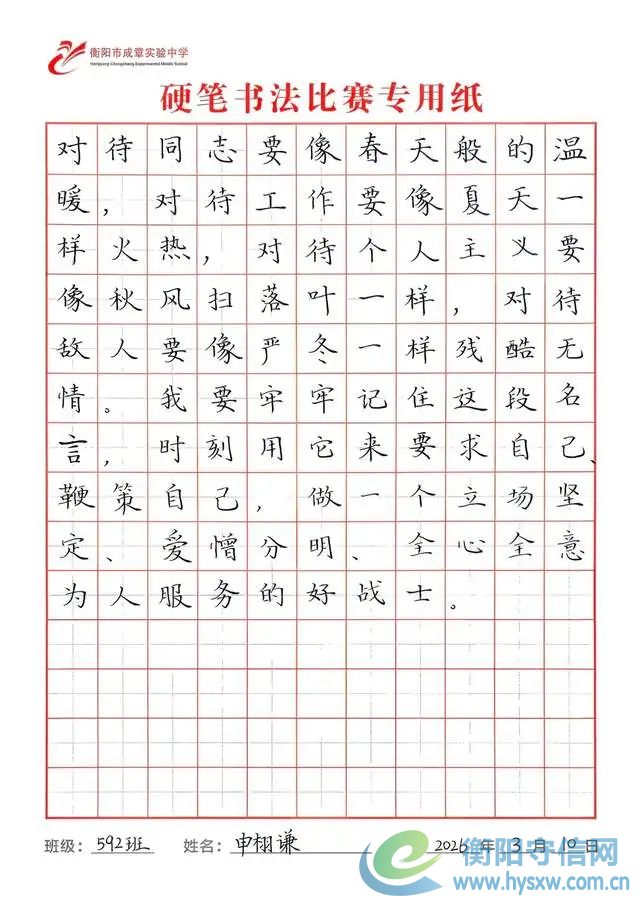 衡阳市成章实验中学
Hengyang Chengzhang Experimental Middle School
硬笔书法比赛专用纸
对待同志要像春天般的温
暖，对待工作要像夏天一
样火热，对待个人主义要
像秋风扫落叶一样，对待
敌人要像严冬一样残酷无
情。我要牢牢记住这段名
言，时刻用它来要求自己、
鞭策自己，做一个立场坚
定、爱憎分明、全心全意
为人服务的好战士。
班级：592班 姓名：申栩谦 2026年3月10日
衡阳守信网
www.hysxw.com.cn